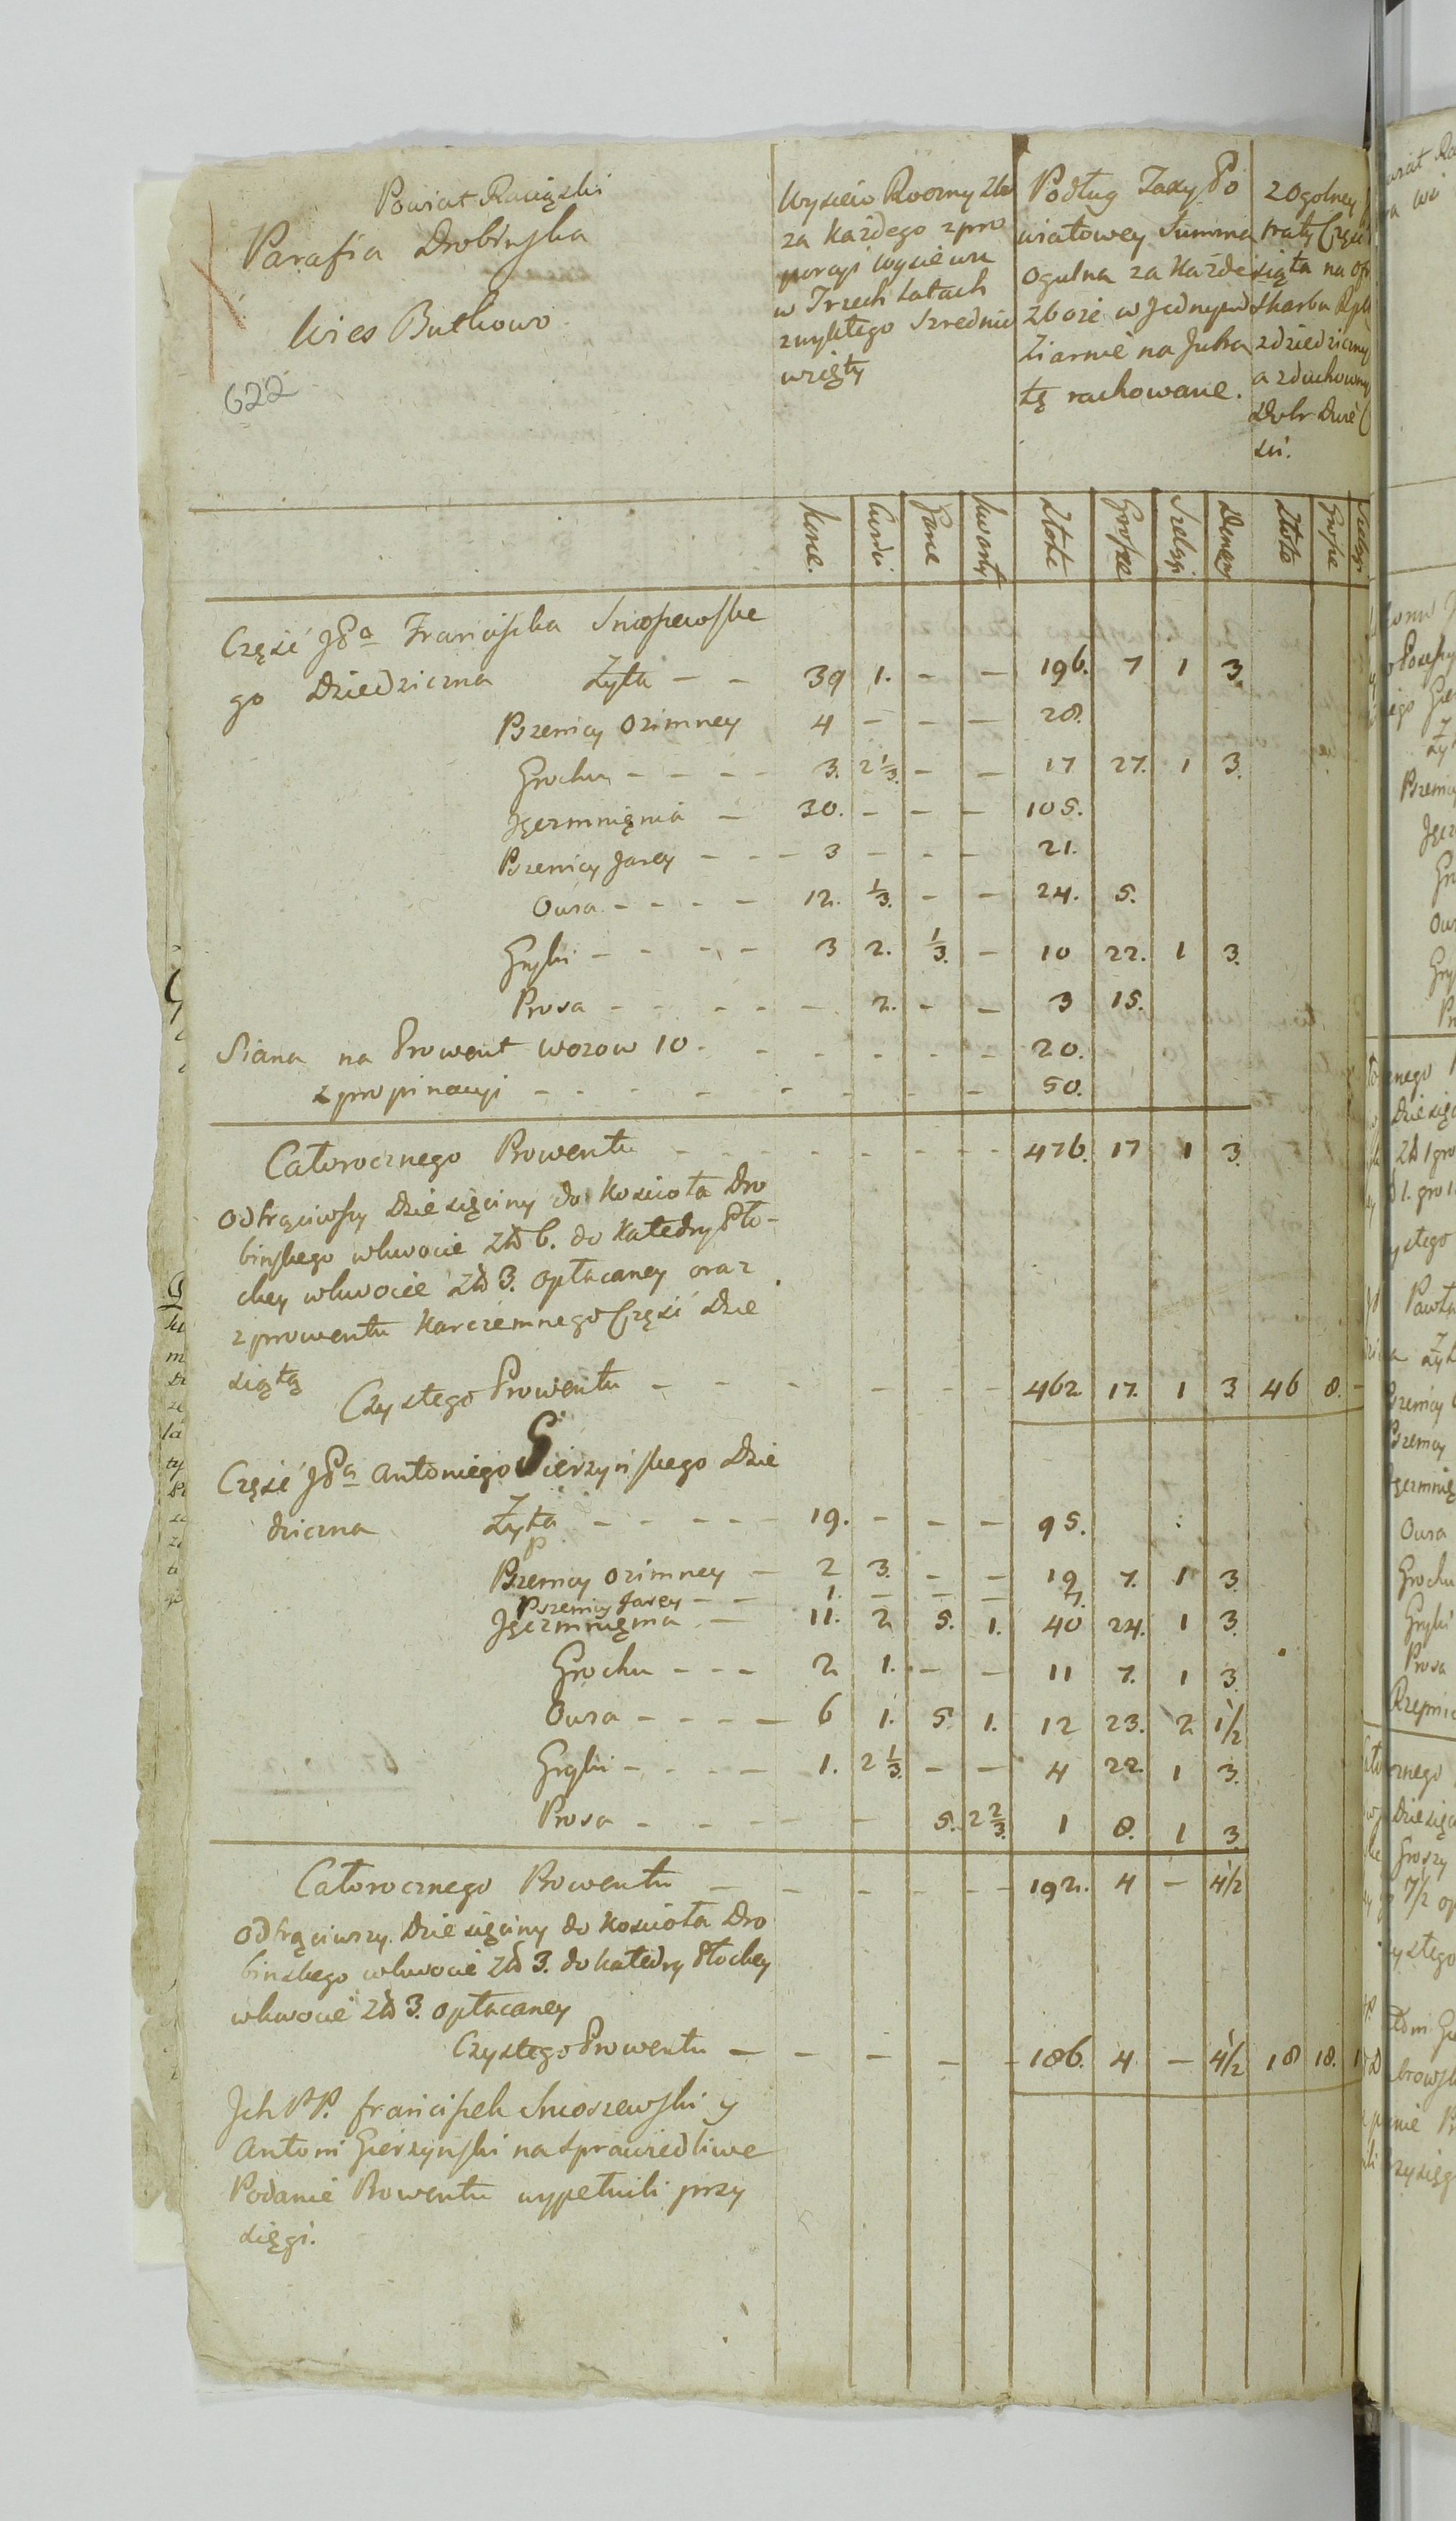 Powiat Raciązki
Parafia Drobinska
Wies Budkowo
622
Wysiew Roczny Zbo
za każdego z pro
porcyi wysiewu
w Trzech Latach
zwykłego Srednio
wzięty
Podług Taxy Po
wiatowey Summa
ogulna za każde
zboże w Jednym
Ziarnie na Intra
tę rachowane.
z Ogolney
traty Część
siąta na Ofi
Skarbu Rplt
z dziedziczny
a z duchowny
Dobr Dwie C
sci.
Korce. Cwierci Garce Kwarty Złote Grosze Szelągi Denary Złote Grosze Szelągi
Część JPa Franciszka Snioszewskie
go Dziedziczna Zyta - - 39 1. - - 196. 7 1 3.
Pszenicy Ozimney 4 - - - 28.
Grochu - - - - 3. 2 1/3. - - 17 27. 1 3.
Jęczmnięnia - 30. - - - 105.
Pszenicy Jarey - - - 3 - - - 21.
Owsa - - - - 12. 1/3. - - 24. 5.
Gryki - - - - 3 2. 1/3. - 10 22. 1 3.
Prosa - - - - - 2. - - 3 15.
Siana na Prowent wozow 10. - - - - - 20.
z propinacyi - - - - - - - - 50.
Całorocznego Prowentu - - - - - - - - 476. 17 1 3.
Odtrąciwszy Dziesięciny do Koscioła Dro
binskego w kwocie Zł 6. do Katedry Pło-
ckey w kwocie Zł 3. opłacaney oraz
z prowentu Karczemnego Część Dzie
siątą
Czystego Prowentu - - - - - - 462 17. 1 3 46 8. -
Część JPa Antoniego Gierzynskego Dzie
dziczna Zyta - - - - - 19. - - - 95.
Pszenicy Ozimney - 2 3. - - 19 7. 1 3.
Pszenicy Jarey - - 1. - - - 7.
Jęczmnięnia - 11. 2 5. 1. 40 24. 1 3.
Grochu - - - 2 1. - - 11 7. 1 3.
Owsa - - - - 6 1. 5. 1. 12 23. 2 1 1/2
Gryki - - - - 1. 2 1/3. - - 4 22. 1 3.
Prosa - - - - - 5. 2 2/3. 1 8. 1 3.
Całorocznego Prowentu - - - - - - 192. 4 - 4 1/2
Odtrąciwszy Dziesięciny do Koscioła Dro
binskego w kwocie Zł 3. do Katedry Płockey
w kwocie Zł 3. opłacaney
Czystego Prowentu - - - - - 186. 4 - 4 1/2 18 18. 1
Ich PP. Franciszek Snioszewski y
Antoni Gierzynski na sprawiedliwe
Podanie Prowentu wypełnili przy
sięgi.